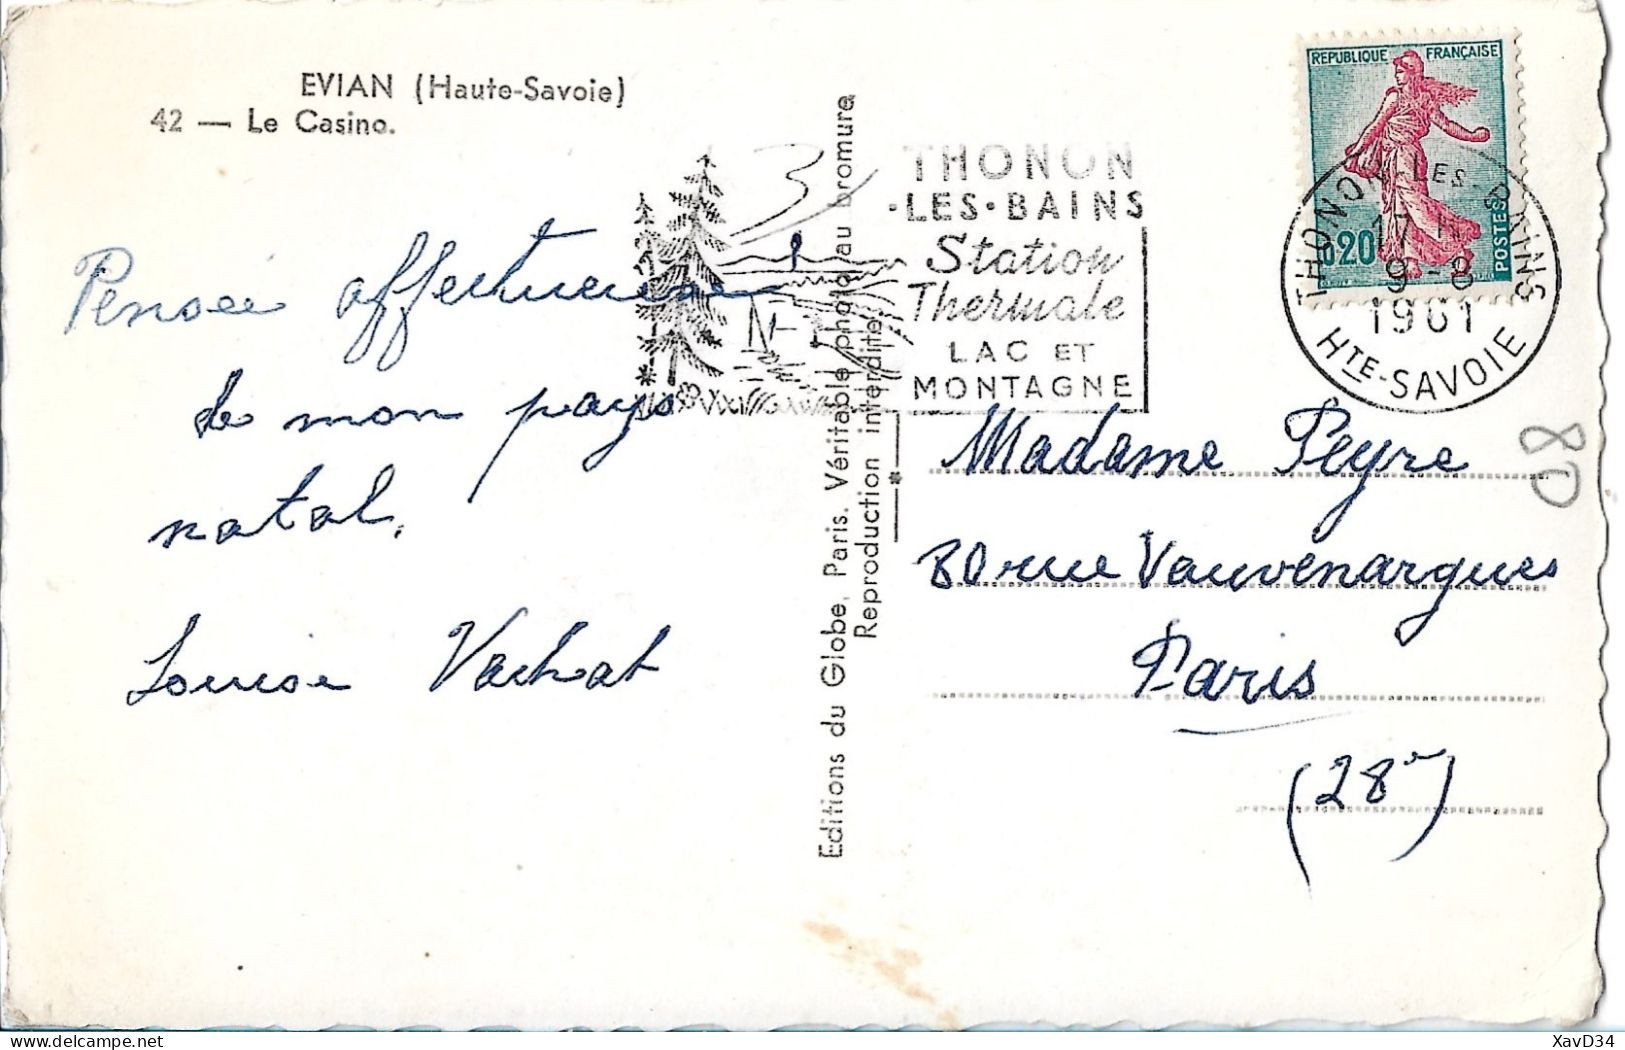 EVIAN (Haute-Savoie)
42 — Le Casino.
Pensée affectueuse
de mon pays
natal.
Louise Vachat
Editions du Globe, Paris. Véritable photo au bromure
Reproduction interdite.
THONON
•LES•BAINS
Station
Thermale
LAC ET
MONTAGNE
REPUBLIQUE FRANÇAISE
0,20
POSTES
THONON-LES-BAINS
17 H
9-8
1961
HTE-SAVOIE
Madame Peyre
80 rue Vauvenargues
Paris
(28e)
80
XavD34